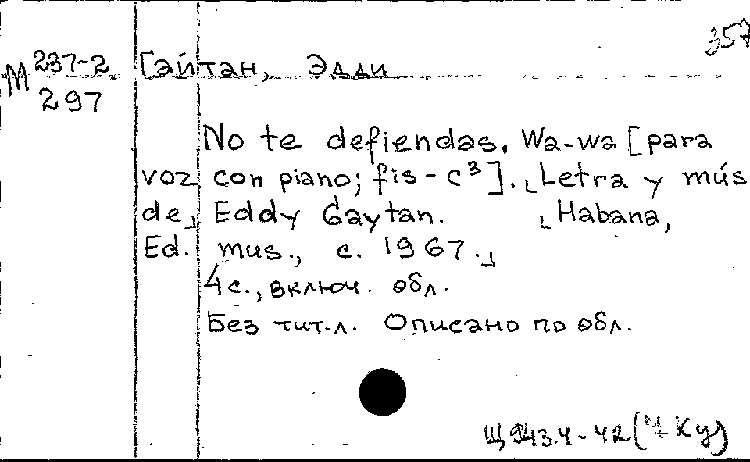 357
М 237-2 Гайтан, Эдди
297
No te defiendas. Wa-wa [para
voz con piano; fis - c³]. ⌞Letra y mús
de⌟ Eddy Gaytan. ⌞Habana,
Ed. mus., c. 1967.⌟
4 с., включ. обл.
Без тит. л. Описано по обл.
Щ943.4-42(7Ку)